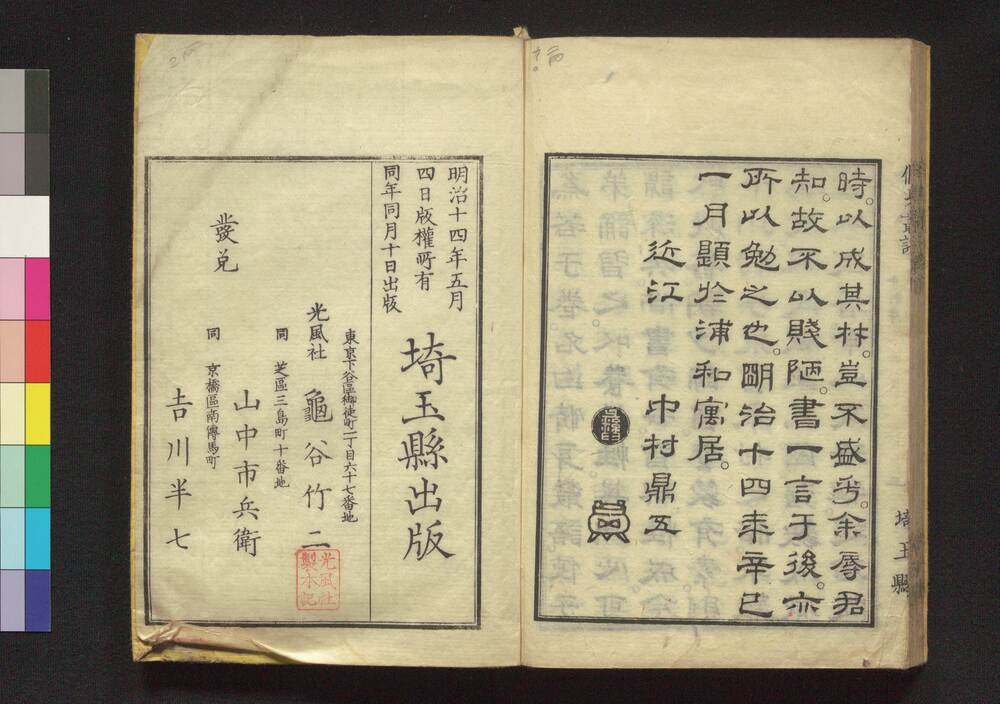 時。以成其材。豈不盛乎。余辱君
知。故不以賤陋。書一言于後。亦
所以勉之也。明治十四年辛巳
一月題於浦和寓居。
近江 中村鼎五
埼玉縣
明治十四年五月
四日版權所有
同年同月十日出版
埼玉縣出版
東京下谷區御徒町二丁目六十七番地
光風社 龜谷竹二
同 芝區三島町十番地
山中市兵衛
同 京橋區南傳馬町
吉川半七
發兌
光風社
製本記